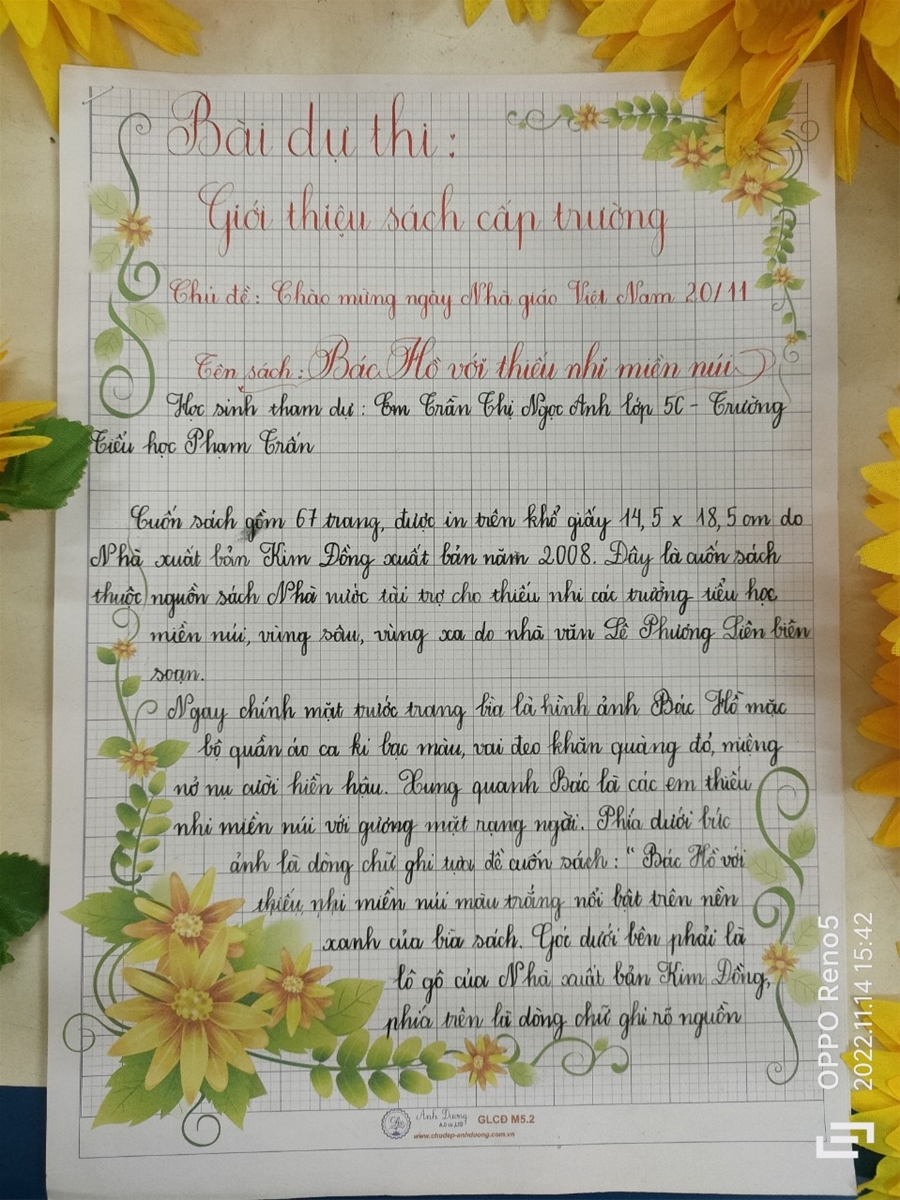 Bài dự thi :
Giới thiệu sách cấp trường
Chủ đề : Chào mừng ngày Nhà giáo Việt Nam 20/11
Tên sách : Bác Hồ với thiếu nhi miền núi
Học sinh tham dự : Em Trần Thị Ngọc Anh lớp 5C - Trường
Tiểu học Phạm Trấn
Cuốn sách gồm 67 trang, được in trên khổ giấy 14,5 x 18,5 cm do
Nhà xuất bản Kim Đồng xuất bản năm 2008. Đây là cuốn sách
thuộc nguồn sách Nhà nước tài trợ cho thiếu nhi các trường tiểu học
miền núi, vùng sâu, vùng xa do nhà văn Lê Phương Liên biên
soạn.
Ngay chính mặt trước trang bìa là hình ảnh Bác Hồ mặc
bộ quần áo ca ki bạc màu, vai đeo khăn quàng đỏ, miệng
nở nụ cười hiền hậu. Xung quanh Bác là các em thiếu
nhi miền núi với gương mặt rạng ngời. Phía dưới bức
ảnh là dòng chữ ghi tựa đề cuốn sách : " Bác Hồ với
thiếu nhi miền núi màu trắng nổi bật trên nền
xanh của bìa sách. Góc dưới bên phải là
lô gô của Nhà xuất bản Kim Đồng,
phía trên là dòng chữ ghi rõ nguồn
Anh Dương
GLCĐ M5.2
www.chudep-anhduong.com.vn
OPPO Reno5
2022.11.14 15:42